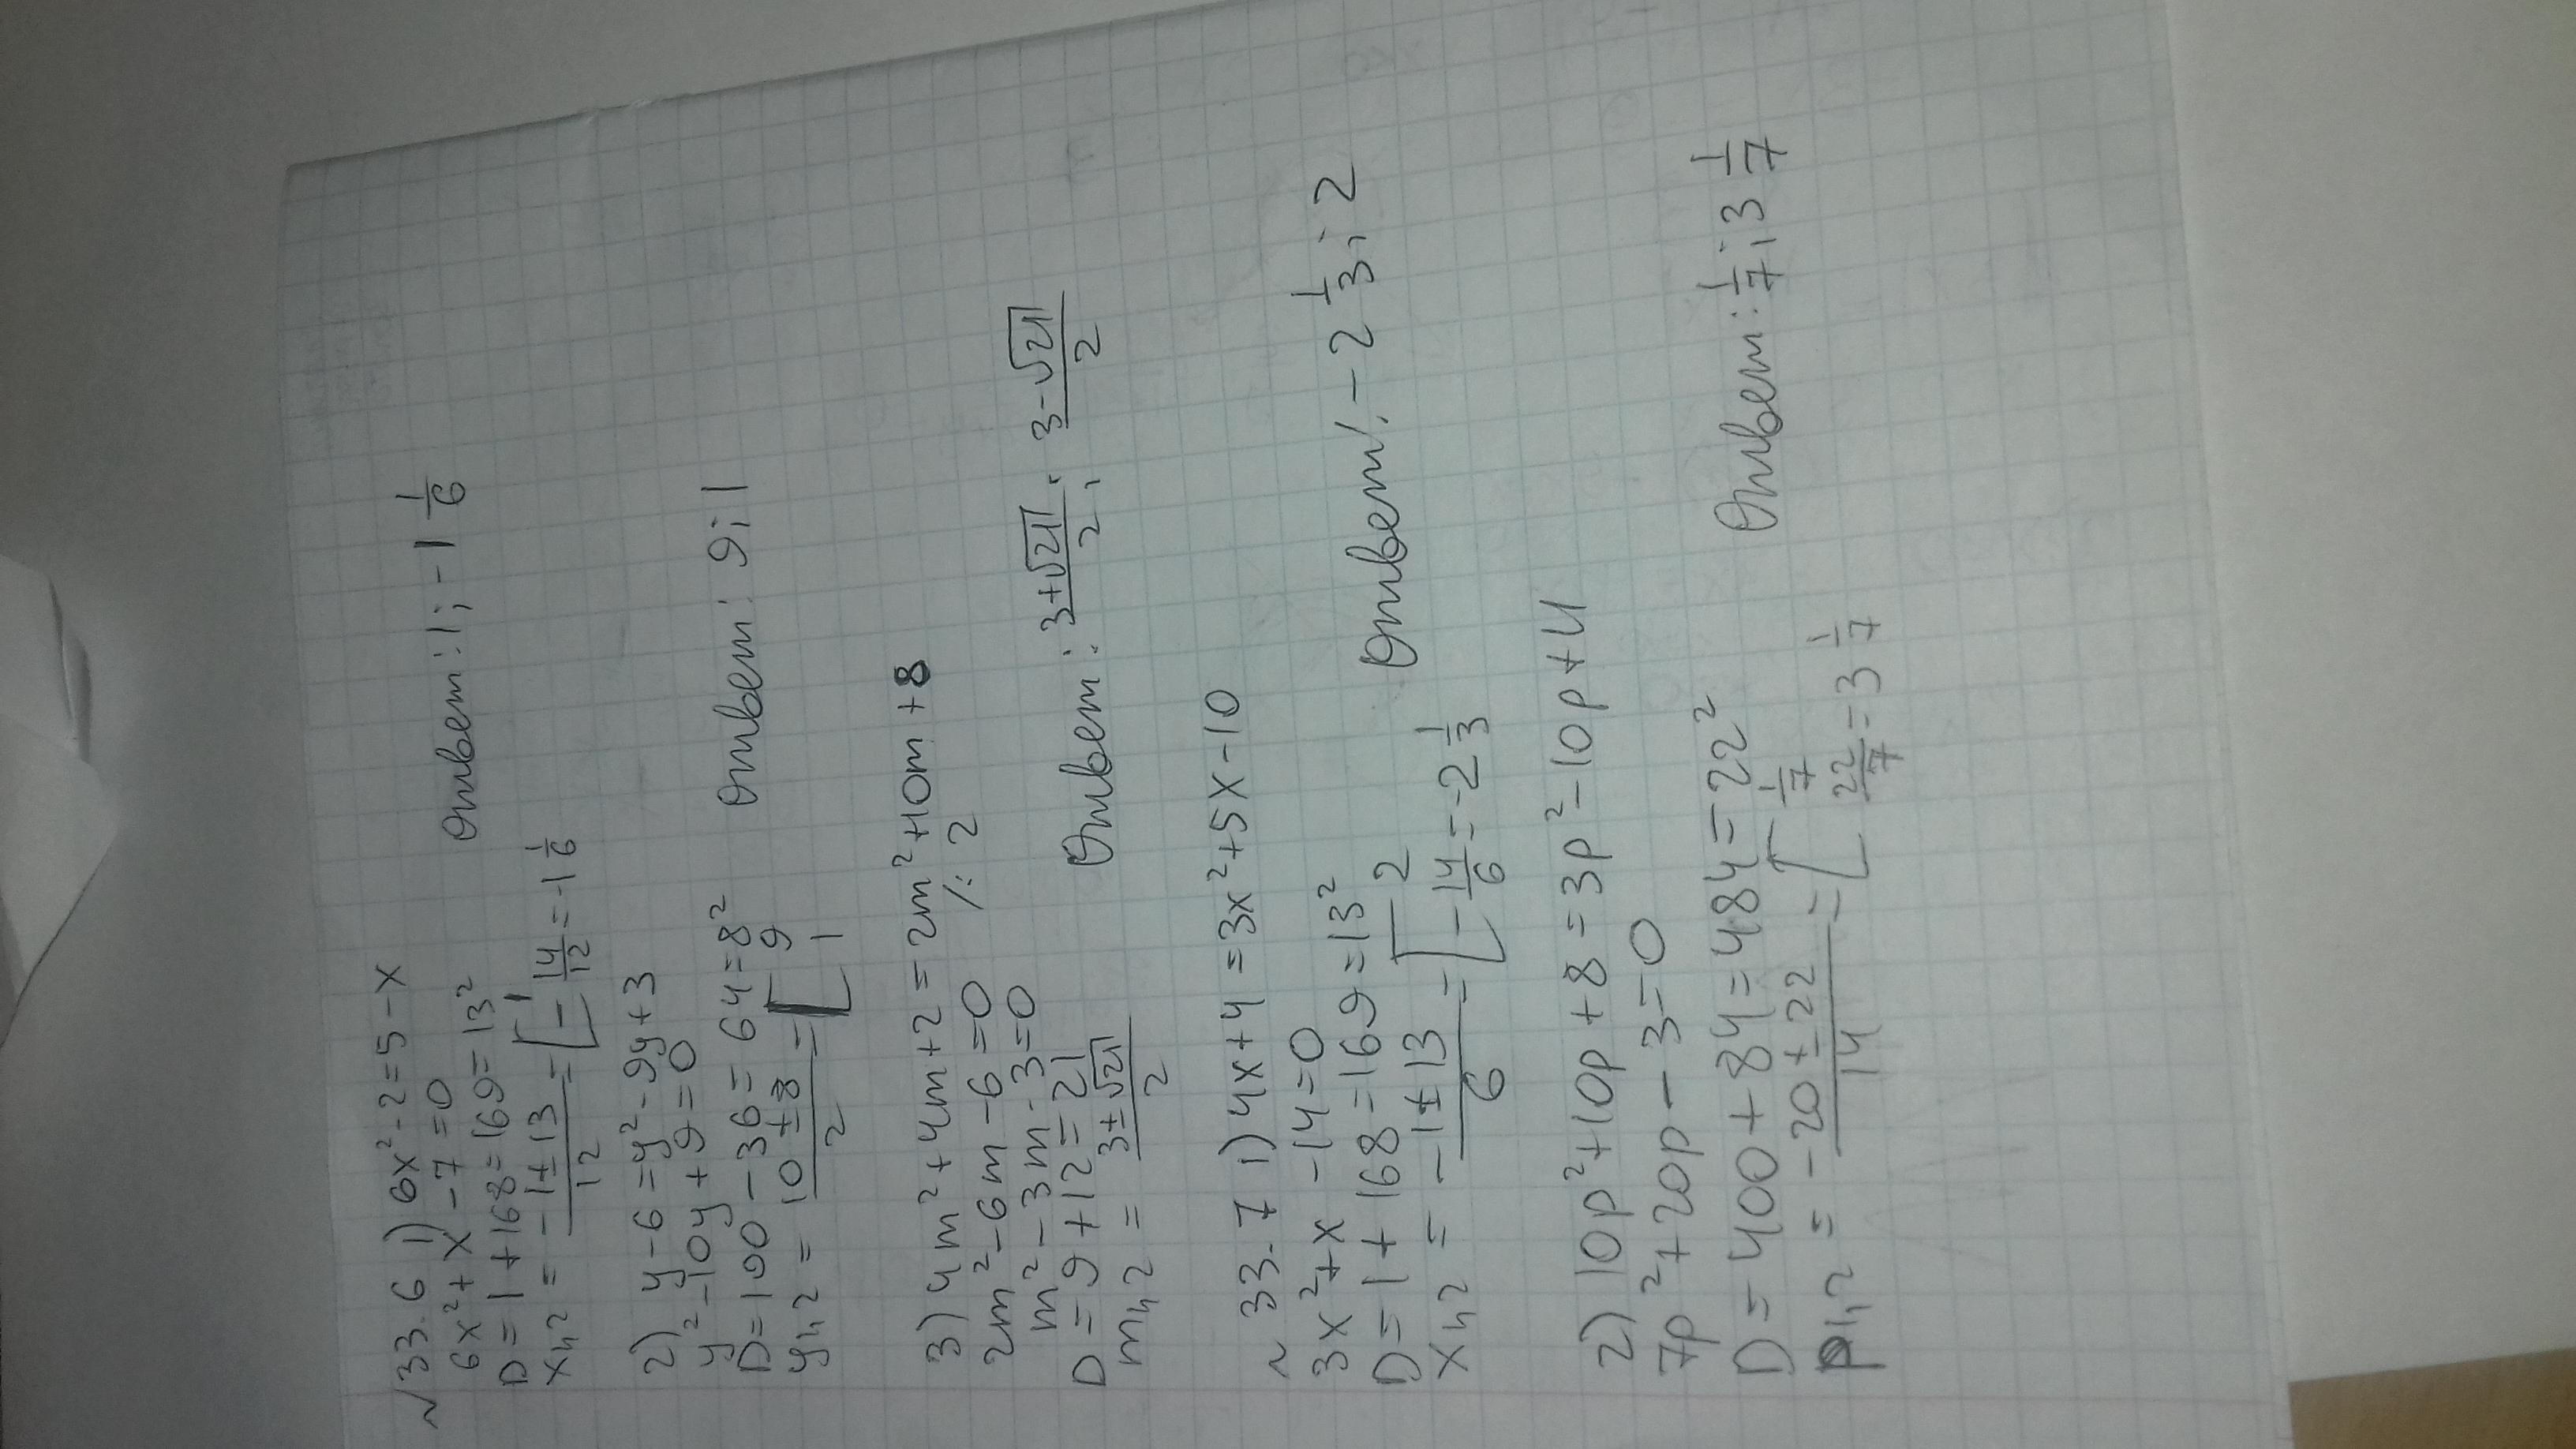 № 33.6 1) 6x²-2=5-x
6x²+x-7=0
D=1+168=169=13²
x₁,₂ = (-1±13)/12 = [1; -14/12=-1 1/6
Ответ: 1; -1 1/6
2) y-6=y²-9y+3
y²-10y+9=0
D=100-36=64=8²
y₁,₂ = (10±8)/2 = [9; 1
Ответ: 9; 1
3) 4m²+4m+2=2m²+10m+8
2m²-6m-6=0 /:2
m²-3m-3=0
D=9+12=21
m₁,₂ = (3±√21)/2
Ответ: (3+√21)/2; (3-√21)/2
№ 33.7 1) 4x+4=3x²+5x-10
3x²+x-14=0
D=1+168=169=13²
x₁,₂ = (-1±13)/6 = [2; -14/6=-2 1/3
Ответ: -2 1/3; 2
2) 10p²+10p+8=3p²-10p+11
7p²+20p-3=0
D=400+84=484=22²
p₁,₂ = (-20±22)/14 = [1/7; 22/7=3 1/7
Ответ: 1/7; 3 1/7